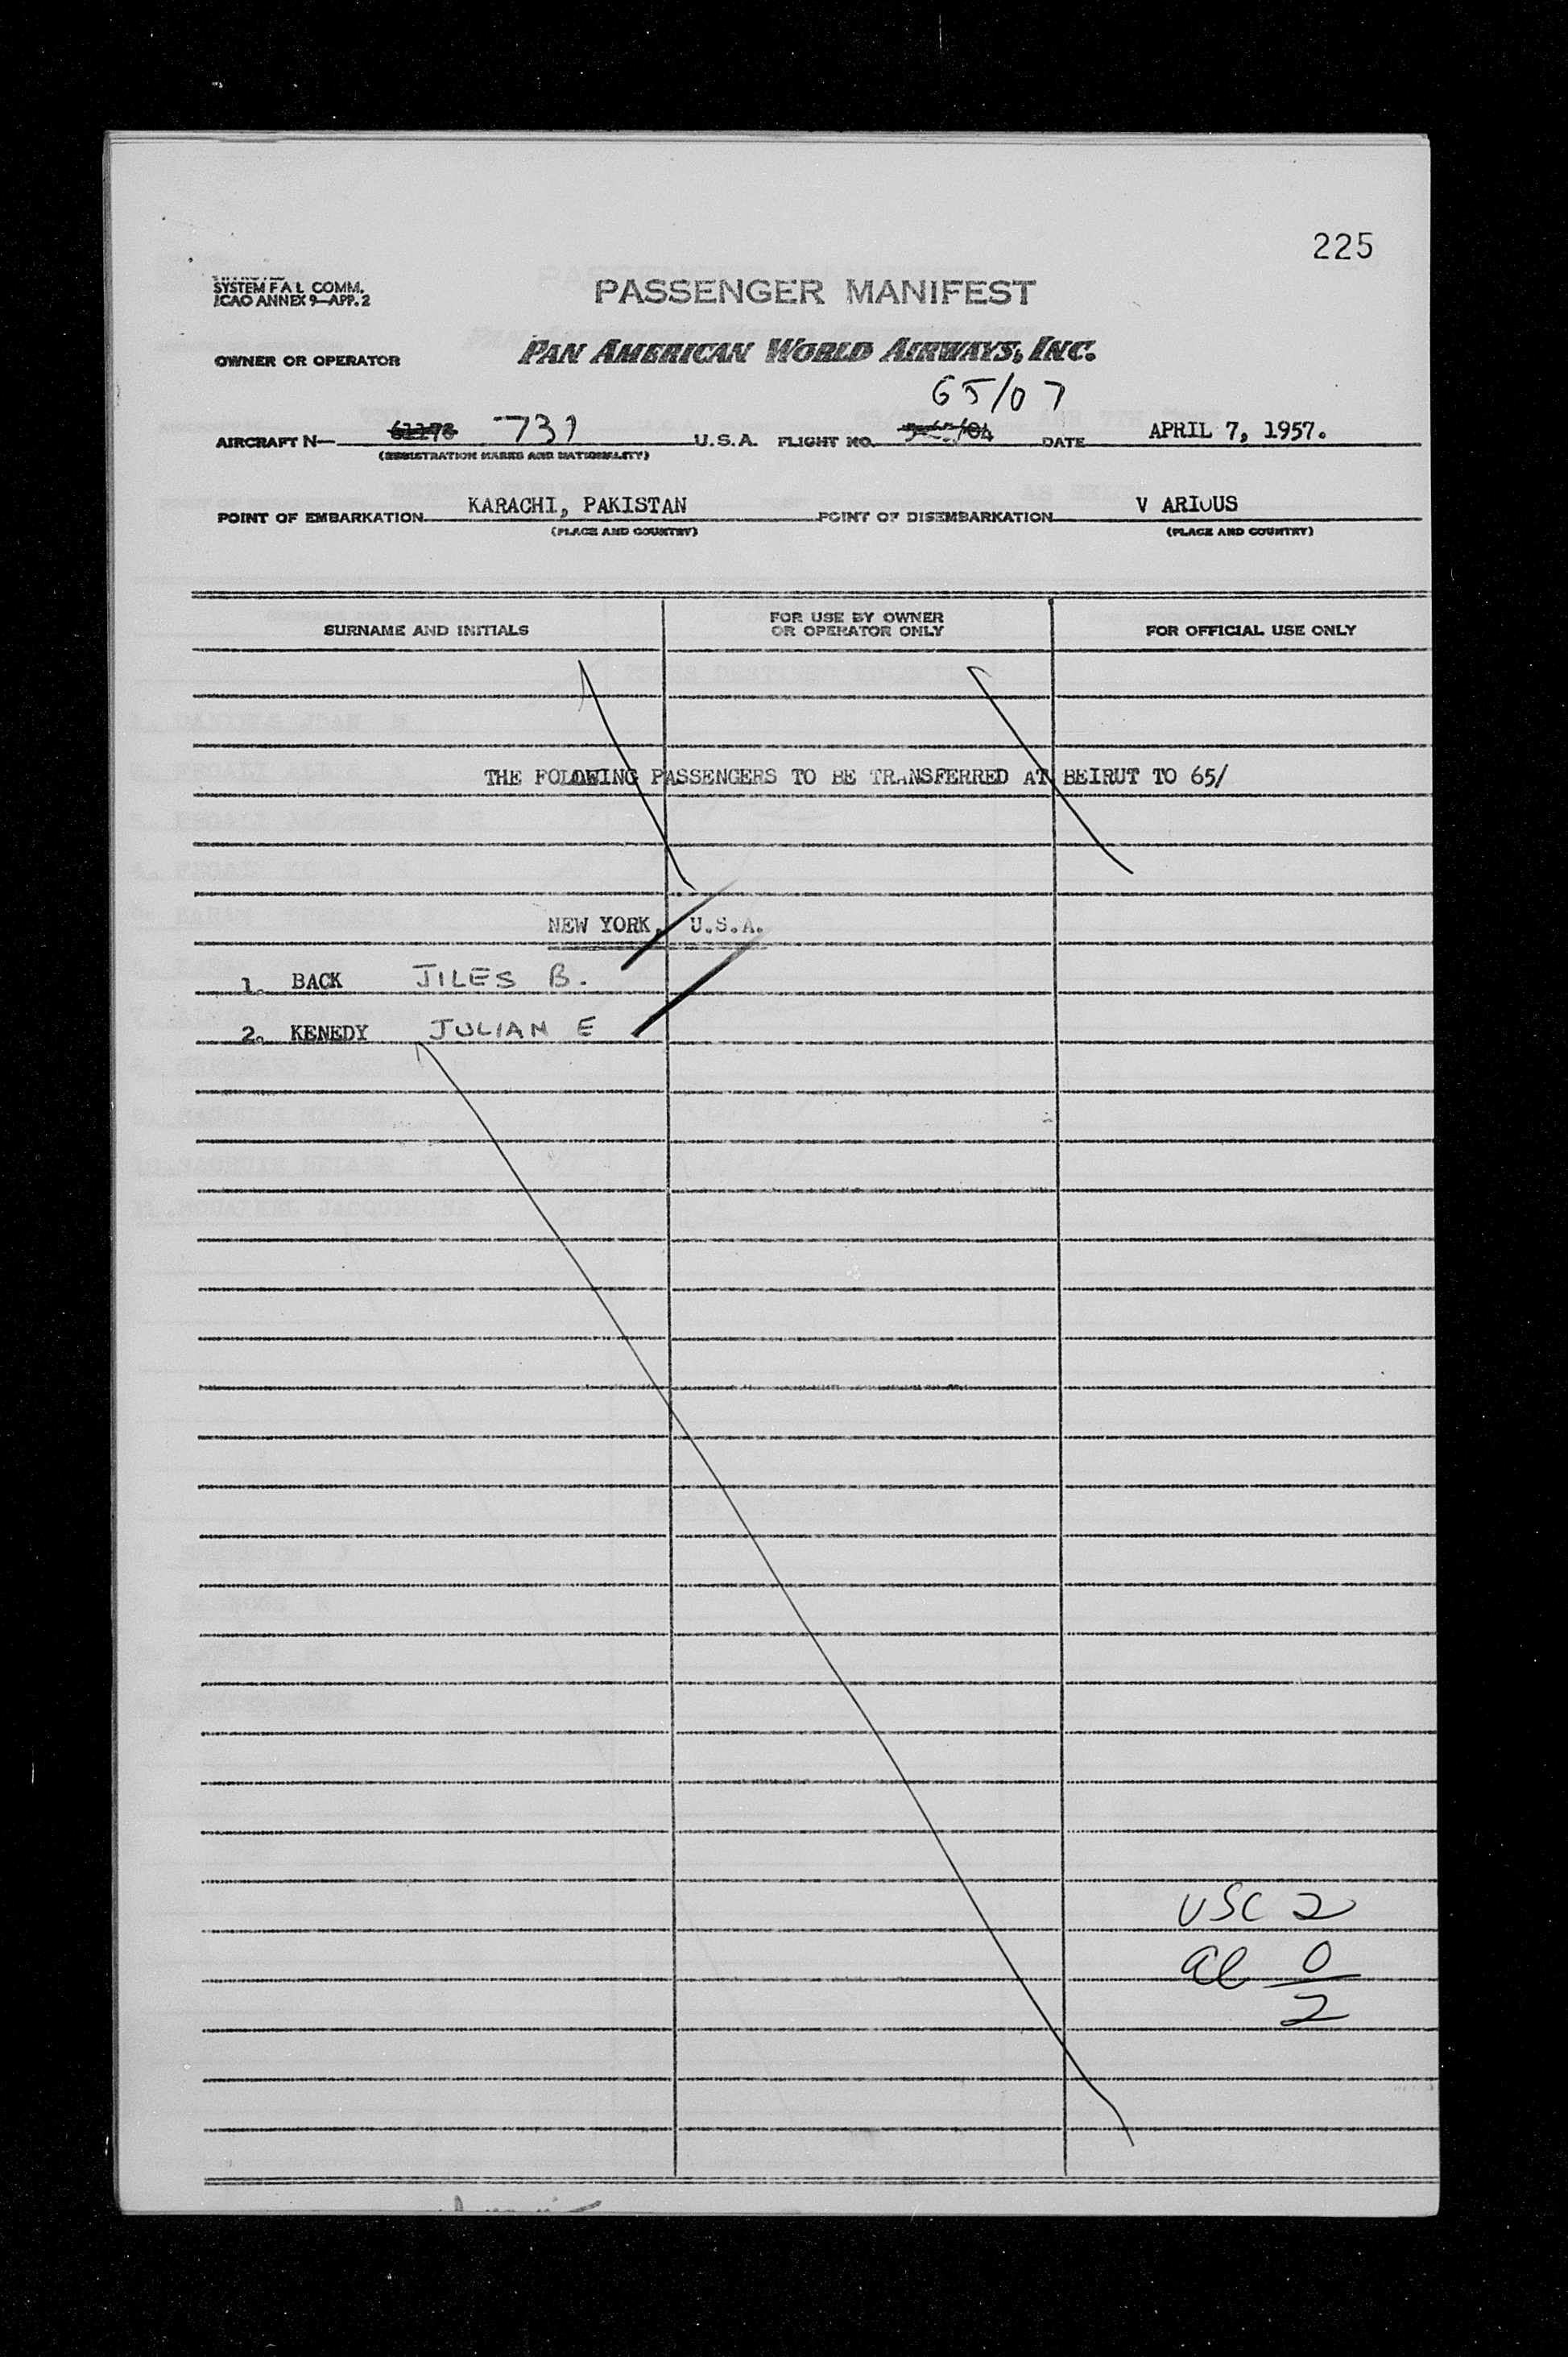 225
SYSTEM F A L COMM.
ICAO ANNEX 9—APP. 2
PASSENGER MANIFEST
OWNER OR OPERATOR PAN AMERICAN WORLD AIRWAYS, INC.
65/07
AIRCRAFT N— 731 U.S.A. FLIGHT NO. DATE APRIL 7, 1957.
(REGISTRATION MARKS AND NATIONALITY)
POINT OF EMBARKATION KARACHI, PAKISTAN POINT OF DISEMBARKATION V ARIOUS
(PLACE AND COUNTRY) (PLACE AND COUNTRY)
SURNAME AND INITIALS FOR USE BY OWNER OR OPERATOR ONLY FOR OFFICIAL USE ONLY
THE FOLOWING PASSENGERS TO BE TRANSFERRED AT BEIRUT TO 65/
NEW YORK, U.S.A.
1. BACK JILES B.
2. KENEDY JULIAN E
USC 2
al 0
2